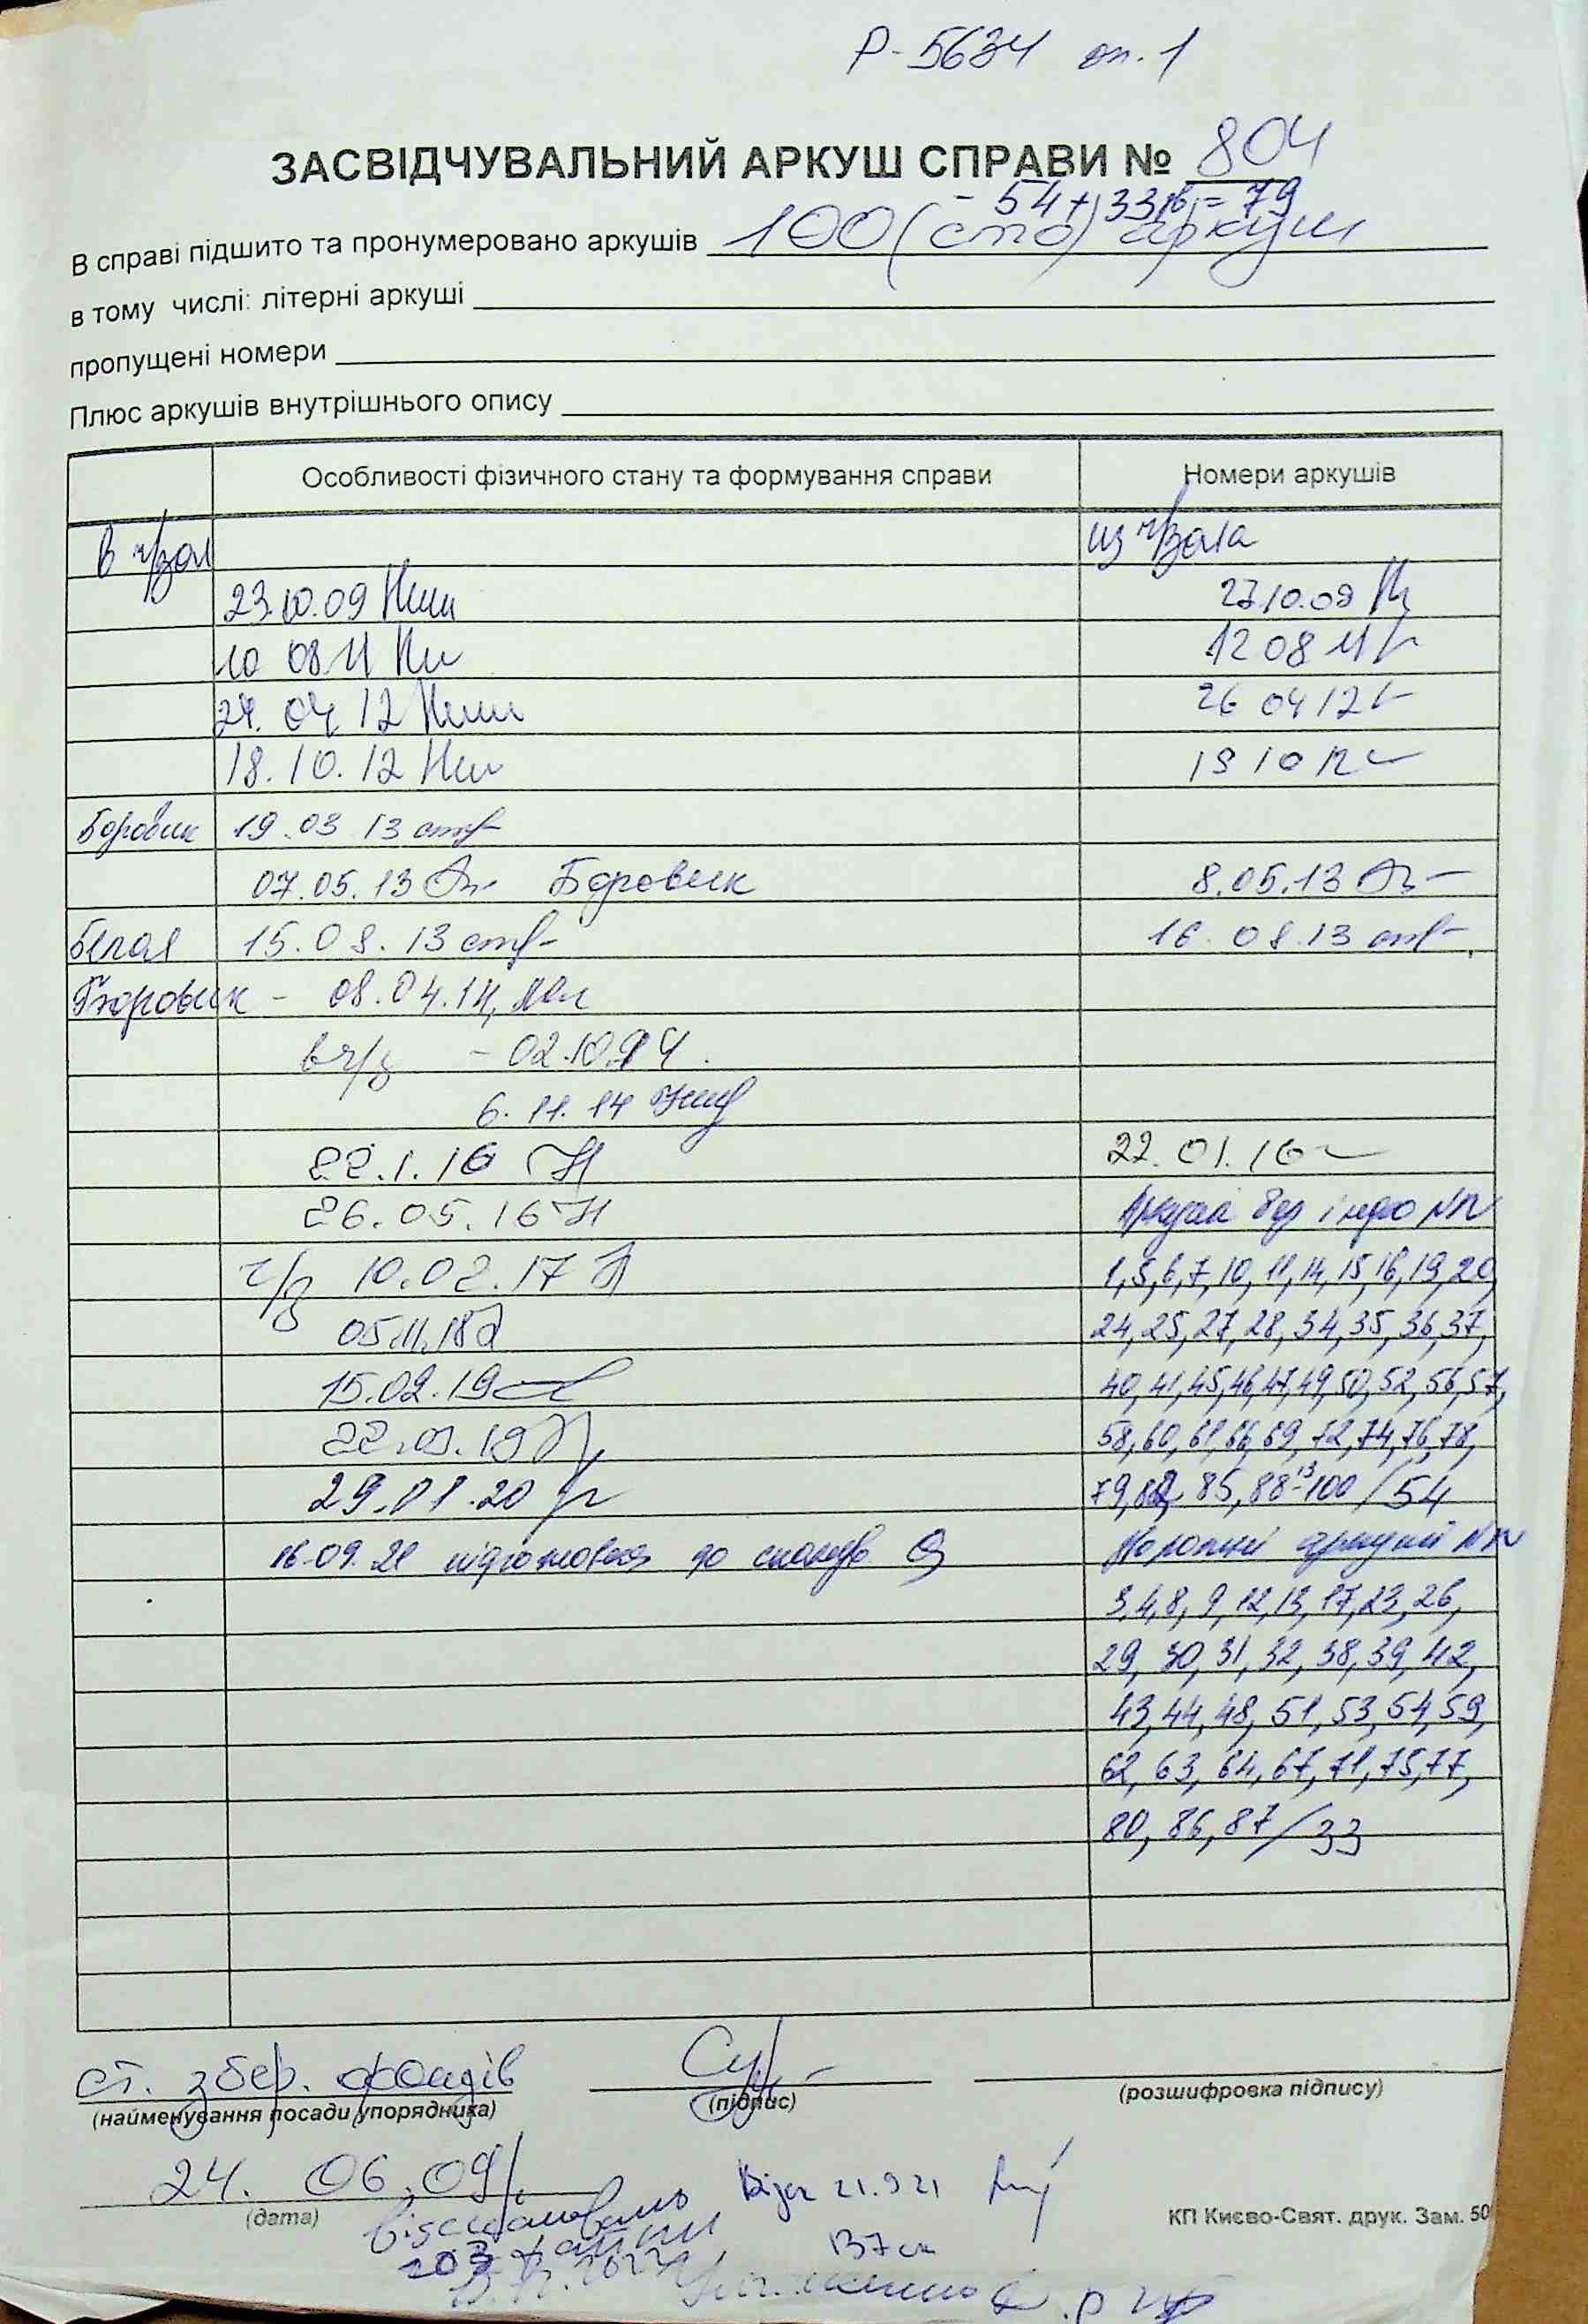 Р-5634 оп. 1
ЗАСВІДЧУВАЛЬНИЙ АРКУШ СПРАВИ № 804
- 54+33 = 79
В справі підшито та пронумеровано аркушів 100 (сто) аркуш
в тому числі: літерні аркуші
пропущені номери
Плюс аркушів внутрішнього опису
Особливості фізичного стану та формування справи Номери аркушів
в ч/зал из ч/зала
23.10.09 27.10.09
10 08 11 12 08 11
24. 04 12 26 04 12
18. 10. 12 19 10 12
Боровик 19.03 13
07.05.13 Боровик 8.05.13
Белая 15.08.13 16.08.13
Боровик - 08.04.14,
в ч/з - 02.10.14.
6. 11. 14
22.1.16 22.01.16
26.05.16 Аркуші без інфо NN
ч/з 10.02.17 1,5,6,7,10,11,14,15,16,19,20,
05.11.18 24,25,27,28,34,35,36,37,
15.02.19 40,41,45,46,47,49,50,52,56,57,
22.01.19 58,60,61,66,69,72,74,76,78,
29.01.20 79,82, 85, 88-100 / 54
16.09.21 підготовка до сканув. Порожні аркуші NN
3,4,8, 9, 12, 13, 17, 23, 26,
29, 30, 31, 32, 38, 39, 42,
43, 44, 48, 51, 53, 54, 59,
62, 63, 64, 67, 71, 75, 77,
80, 86, 87 / 33
ст. збер. фондів
(найменування посади упорядника) (підпис) (розшифровка підпису)
24. 06.09
(дата)
відскановано
21.9.21
КП Києво-Свят. друк. Зам. 50